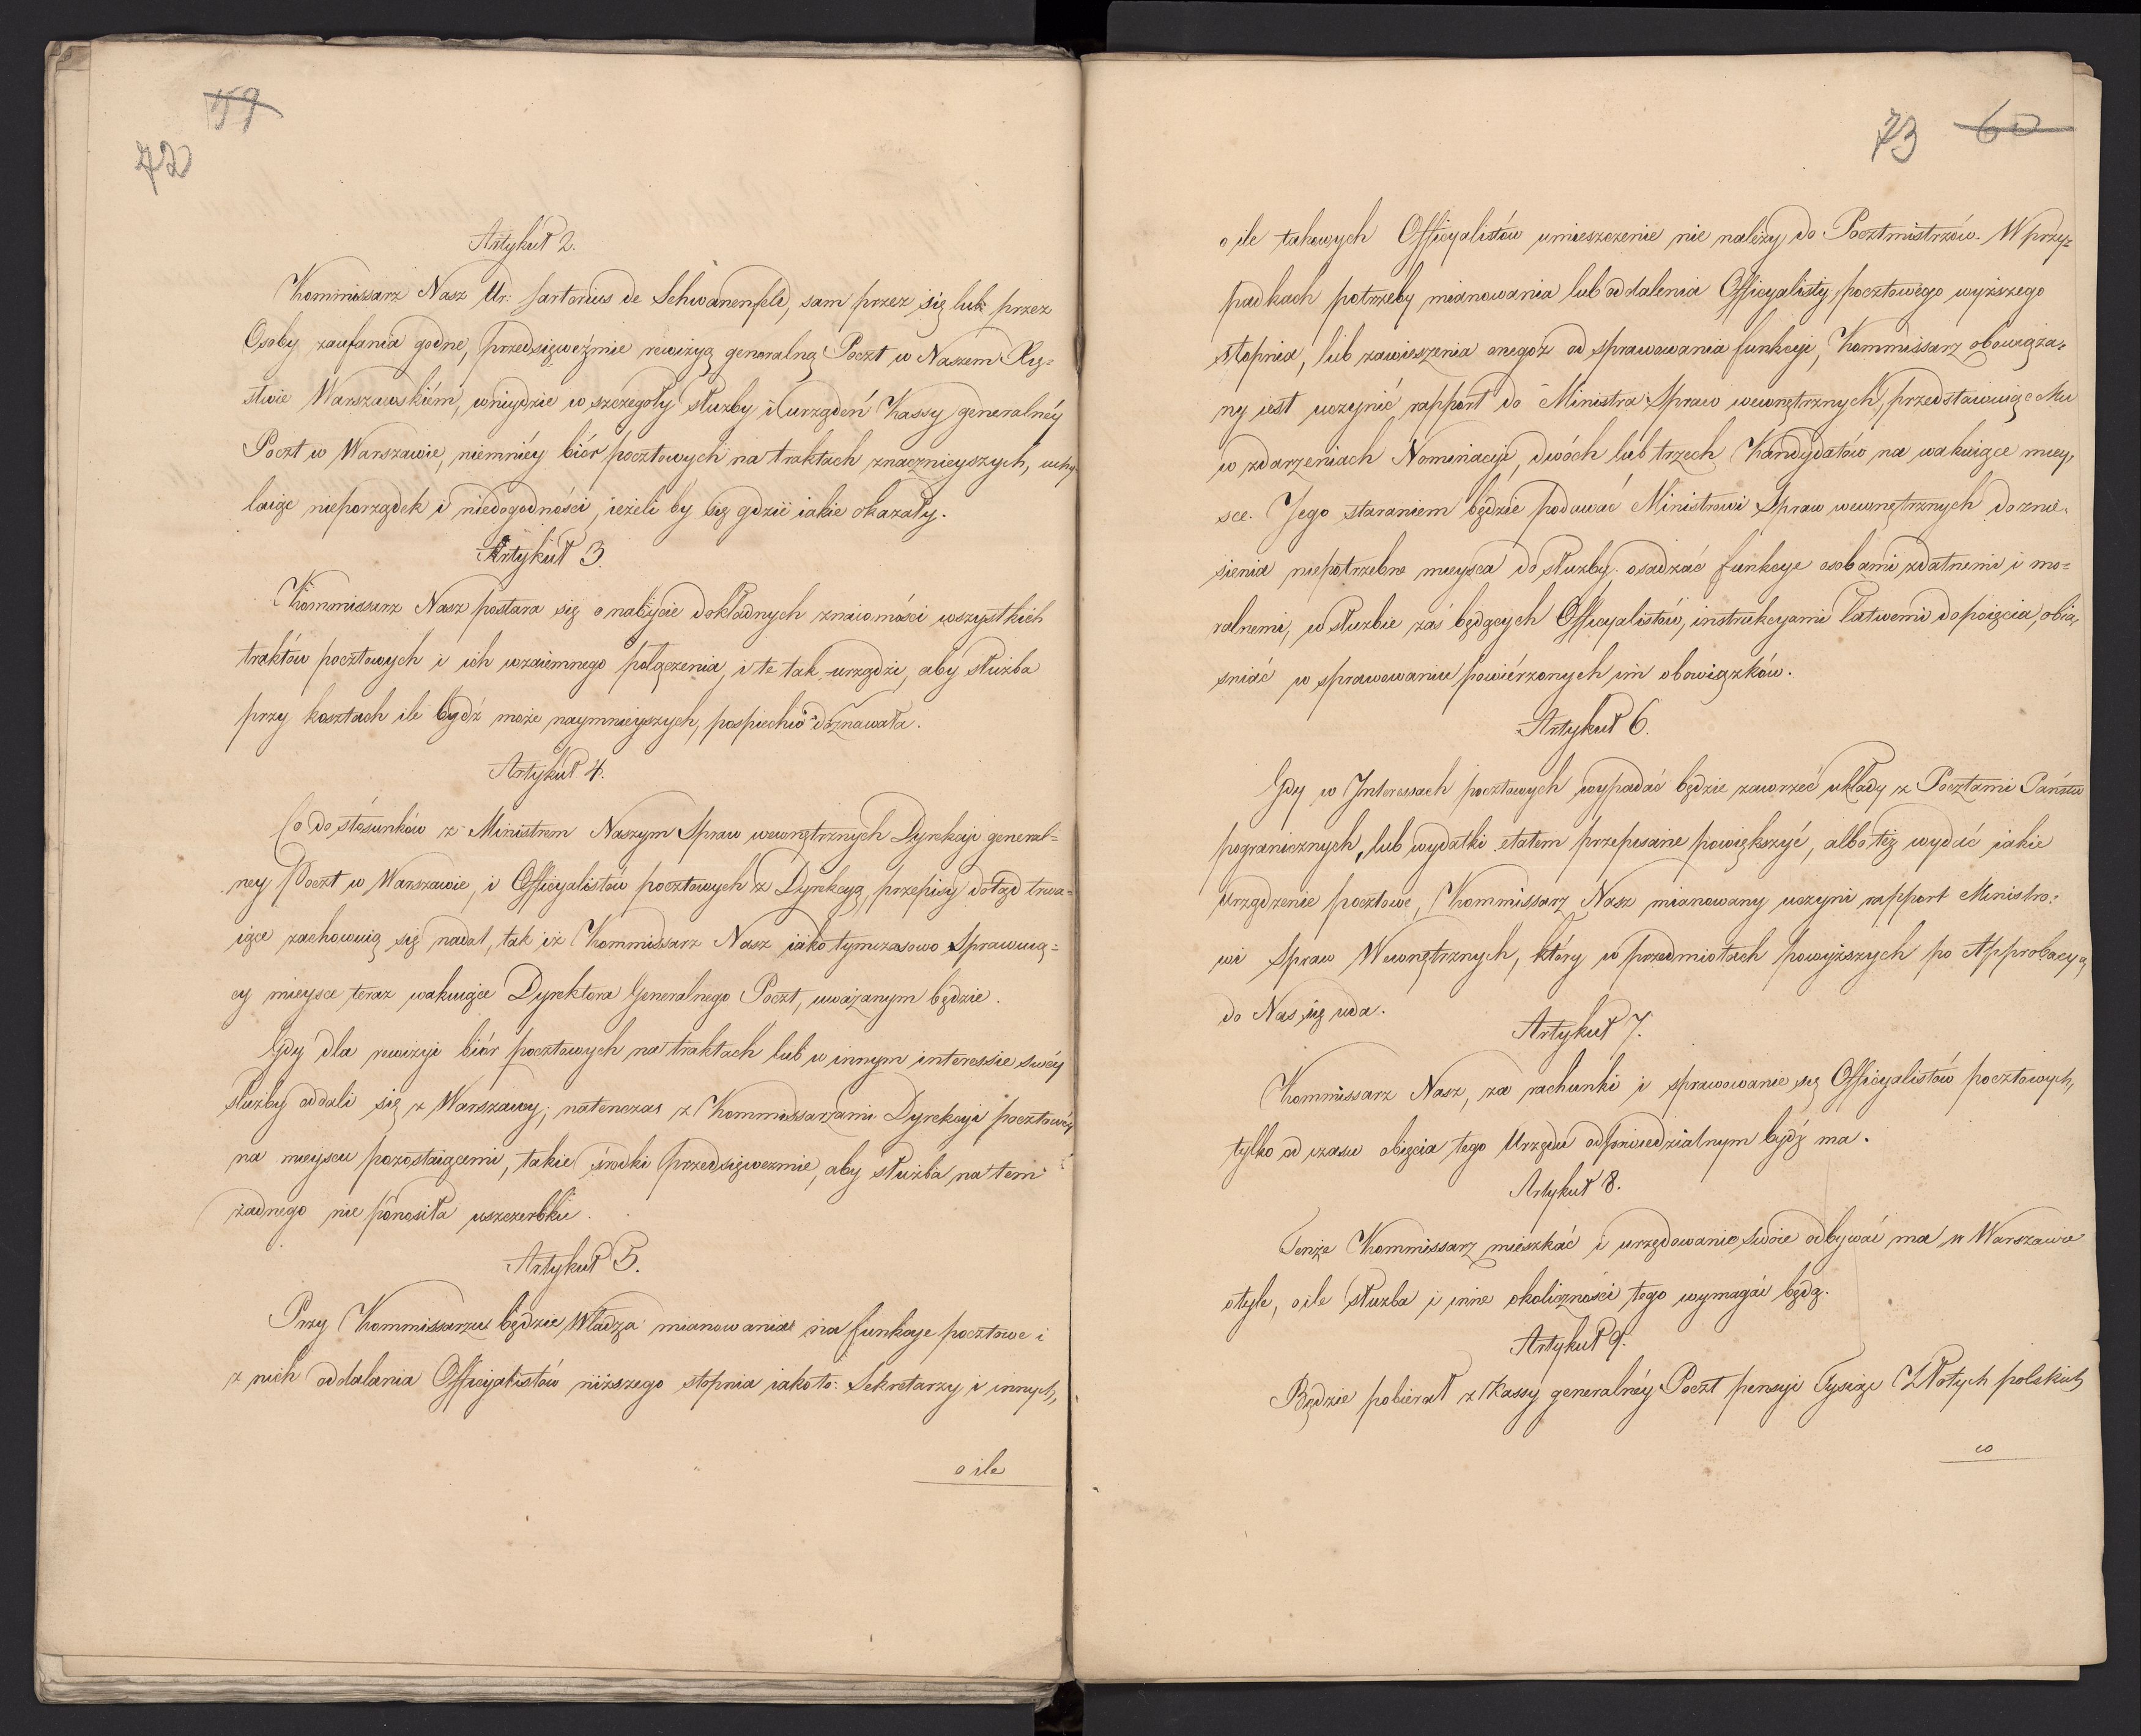 59
72
Artykuł 2.
Kommissarz Nasz Ur: Sartorius de Schwanenfeld, sam przez się lub przez
Osoby zaufania godne, przedsięweźmie rewizyą generalną Poczt w Naszem Xię=
stwie Warszawskiém, wniydzie w szczegóły służby i urządzeń Kassy generalnéy
Poczt w Warszawie, niemniéy biór pocztowych na traktach znacznieyszych, uchy
laiąc nieporządek i niedogodności, ieżeli by się gdzie iakie okazały.
Artykuł 3.
Kommissarz Nasz postara się o nabycie dokładnych znaiomości wszystkich
traktów pocztowych i ich wzaiemnego połączenia, i te tak urządzi, aby służba
przy kosztach ile bydź może naymnieyszych, pospiechu doznawała.
Artykuł 4.
Co do stósunków z Ministrem Naszym Spraw wewnętrznych Dyrekcyi general=
ney Poczt w Warszawie, i Officyalistów pocztowych z Dyrekcyą, przepisy dotąd trwa=
iące zachowuią się nadal, tak iż Kommissarz Nasz iako tymczasowo Sprawuią=
cy mieysce teraz wakuiące Dyrektora Generalnego Poczt, uważanym będzie.
Gdy dla rewizyi biór pocztowych na traktach lub w innym interessie swéy
służby oddali się z Warszawy, natenczas z Kommissarzami Dyrekcyi pocztowéy
na mieyscu pozostaiącemi, takie środki przedsięwezmie, aby służba na tem
żadnego nie ponosiła uszczerbku.
Artykuł 5.
Przy Kommissarzu będzie Władza mianowania na funkcye pocztowe i
z nich oddalania Officyalistów niższego stopnia iako to: Sekretarzy i innych,
o ile
73 60
o ile takowych Officyalistów umieszczenie nie należy do Pocztmistrzów. W przy=
padkach potrzeby mianowania lub oddalenia Officyalisty pocztowego wyższego
stopnia, lub zawieszenia onegoż od sprawowania funkcyi, Kommissarz obowiąza=
ny iest uczynić rapport do Ministra Spraw wewnętrznych, przedstawuiąc Mu
w zdarzeniach Nominacyi, dwóch lub trzech Kandydatów na wakuiące miey=
sce. Jego staraniem będzie podawać Ministrowi Spraw wewnętrznych do znie=
sienia niepotrzebne mieysca do służby, osadzać funkcye osobami zdatnemi i mo=
ralnemi, w służbie zaś będących Officyalistów, instrukcyami łatwemi do poięcia, obia=
sniać w sprawowaniu powiérzonych im obowiązków.
Artykuł 6.
Gdy w Interessach pocztowych wypadać będzie zawrzeć układy z Pocztami Państw
pogranicznych, lub wydatki etatem przepisane powiększyć, albo też wydać iakie
Urządzenie pocztowe, Kommissarz Nasz mianowany uczyni rapport Ministro=
wi Spraw Wewnętrznych, który w przedmiotach powyższych po Approbacyą
do Nas się uda.
Artykuł 7.
Kommissarz Nasz, za rachunki i sprawowanie się Officyalistów pocztowych,
tylko od czasu obięcia tego Urzędu odpowiedzialnym bydź ma.
Artykuł 8.
Tenże Kommissarz mieszkać i urzędowanie swoie odbywać ma w Warszawie
o tyle, o ile służba i inne okoliczności tego wymagać będą.
Artykuł 9.
Będzie pobierał z Kassy generalnéy Poczt pensyi Tysiąc Złotych polskich
co